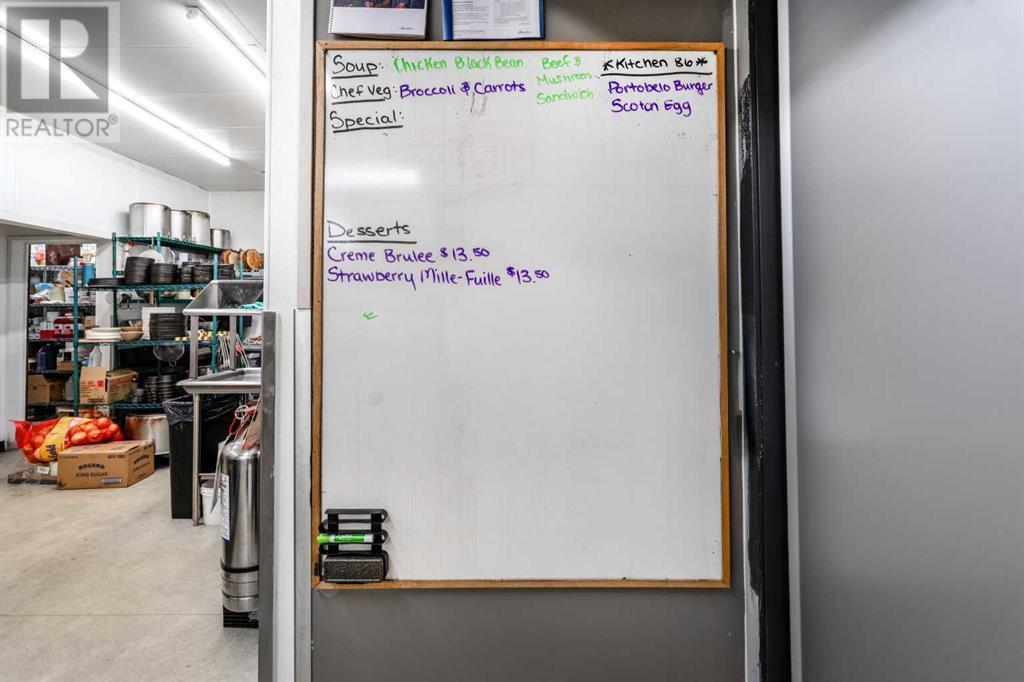 Soup: Chicken Black Bean
Chef Veg: Broccoli & Carrots
Special:
Beef &
Mushroom
Sandwich
*Kitchen 86*
Portobelo Burger
Scotch Egg
Desserts
Creme Brulee $13.50
Strawberry Mille-Fuille $13.50
ROGERS
ICING SUGAR
REALTOR®